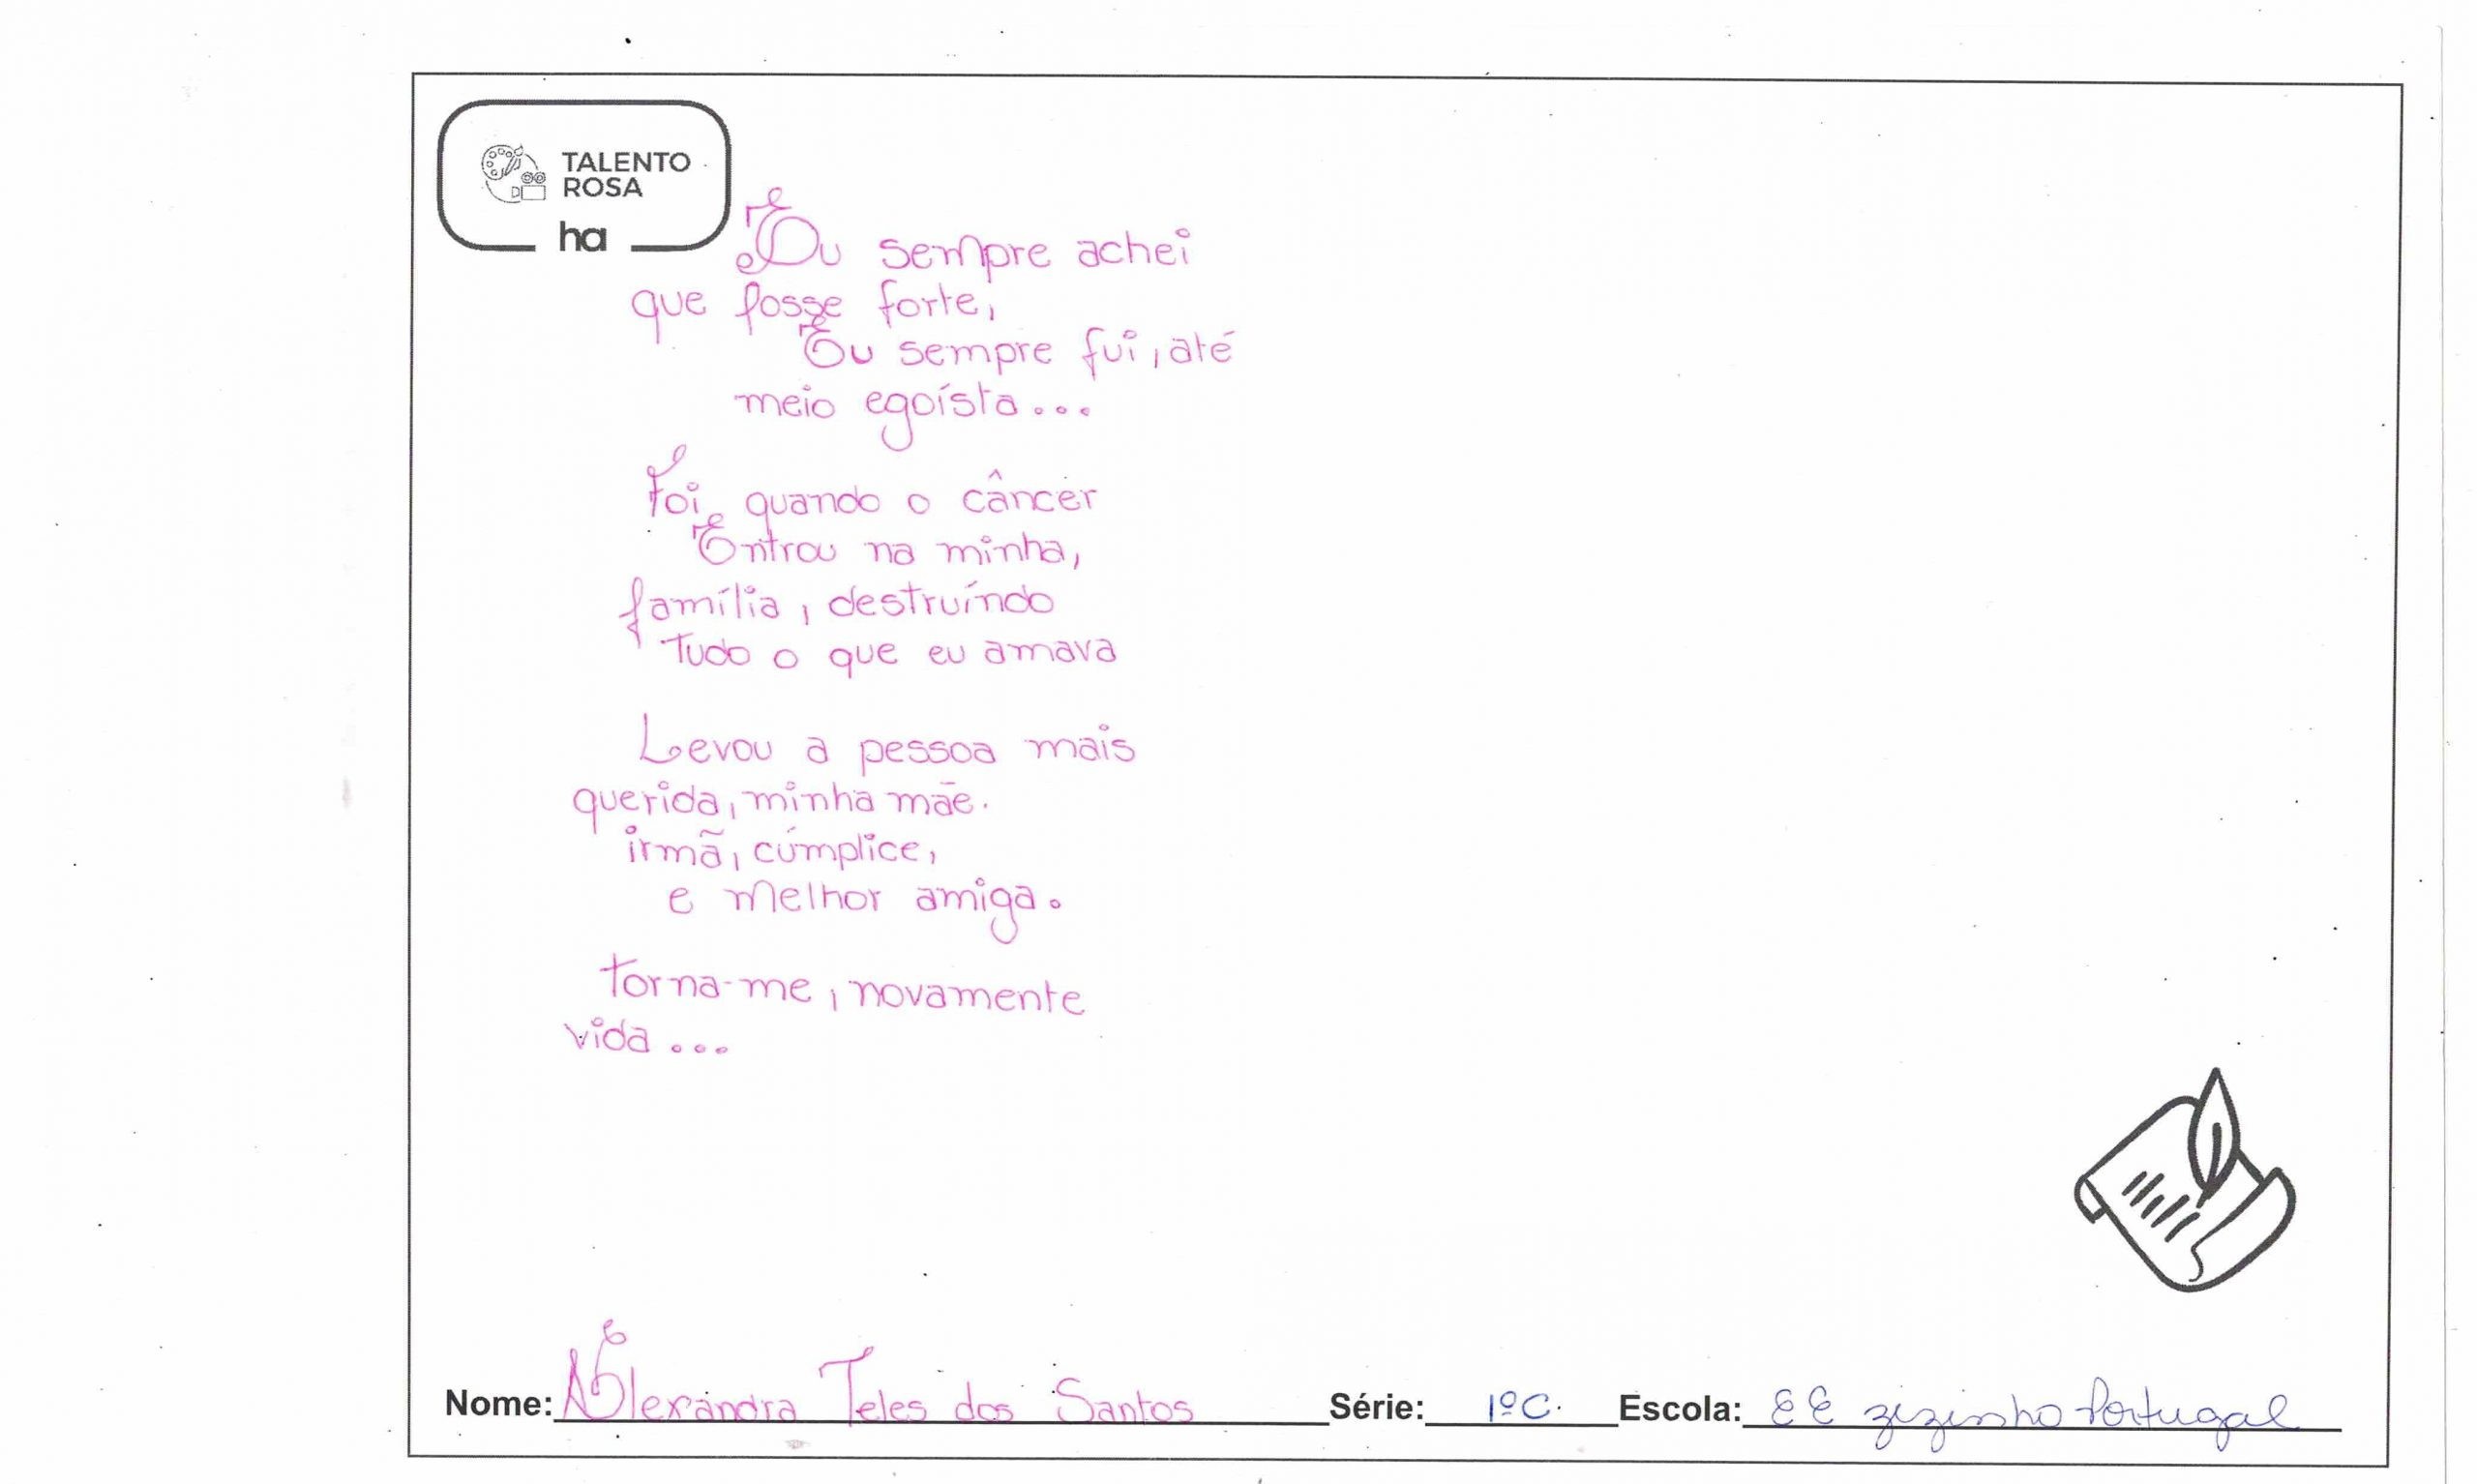 TALENTO
ROSA
ha
Eu sempre achei
que fosse forte,
Eu sempre fui, até
meio egoísta...
Foi quando o câncer
Entrou na minha,
família, destruíndo
Tudo o que eu amava
Levou a pessoa mais
querida, minha mãe.
irmã, cúmplice,
e melhor amiga.
Torna-me, novamente
vida...
Nome: Alexandra Teles dos Santos Série: 1º C. Escola: EE zizinho Portugal